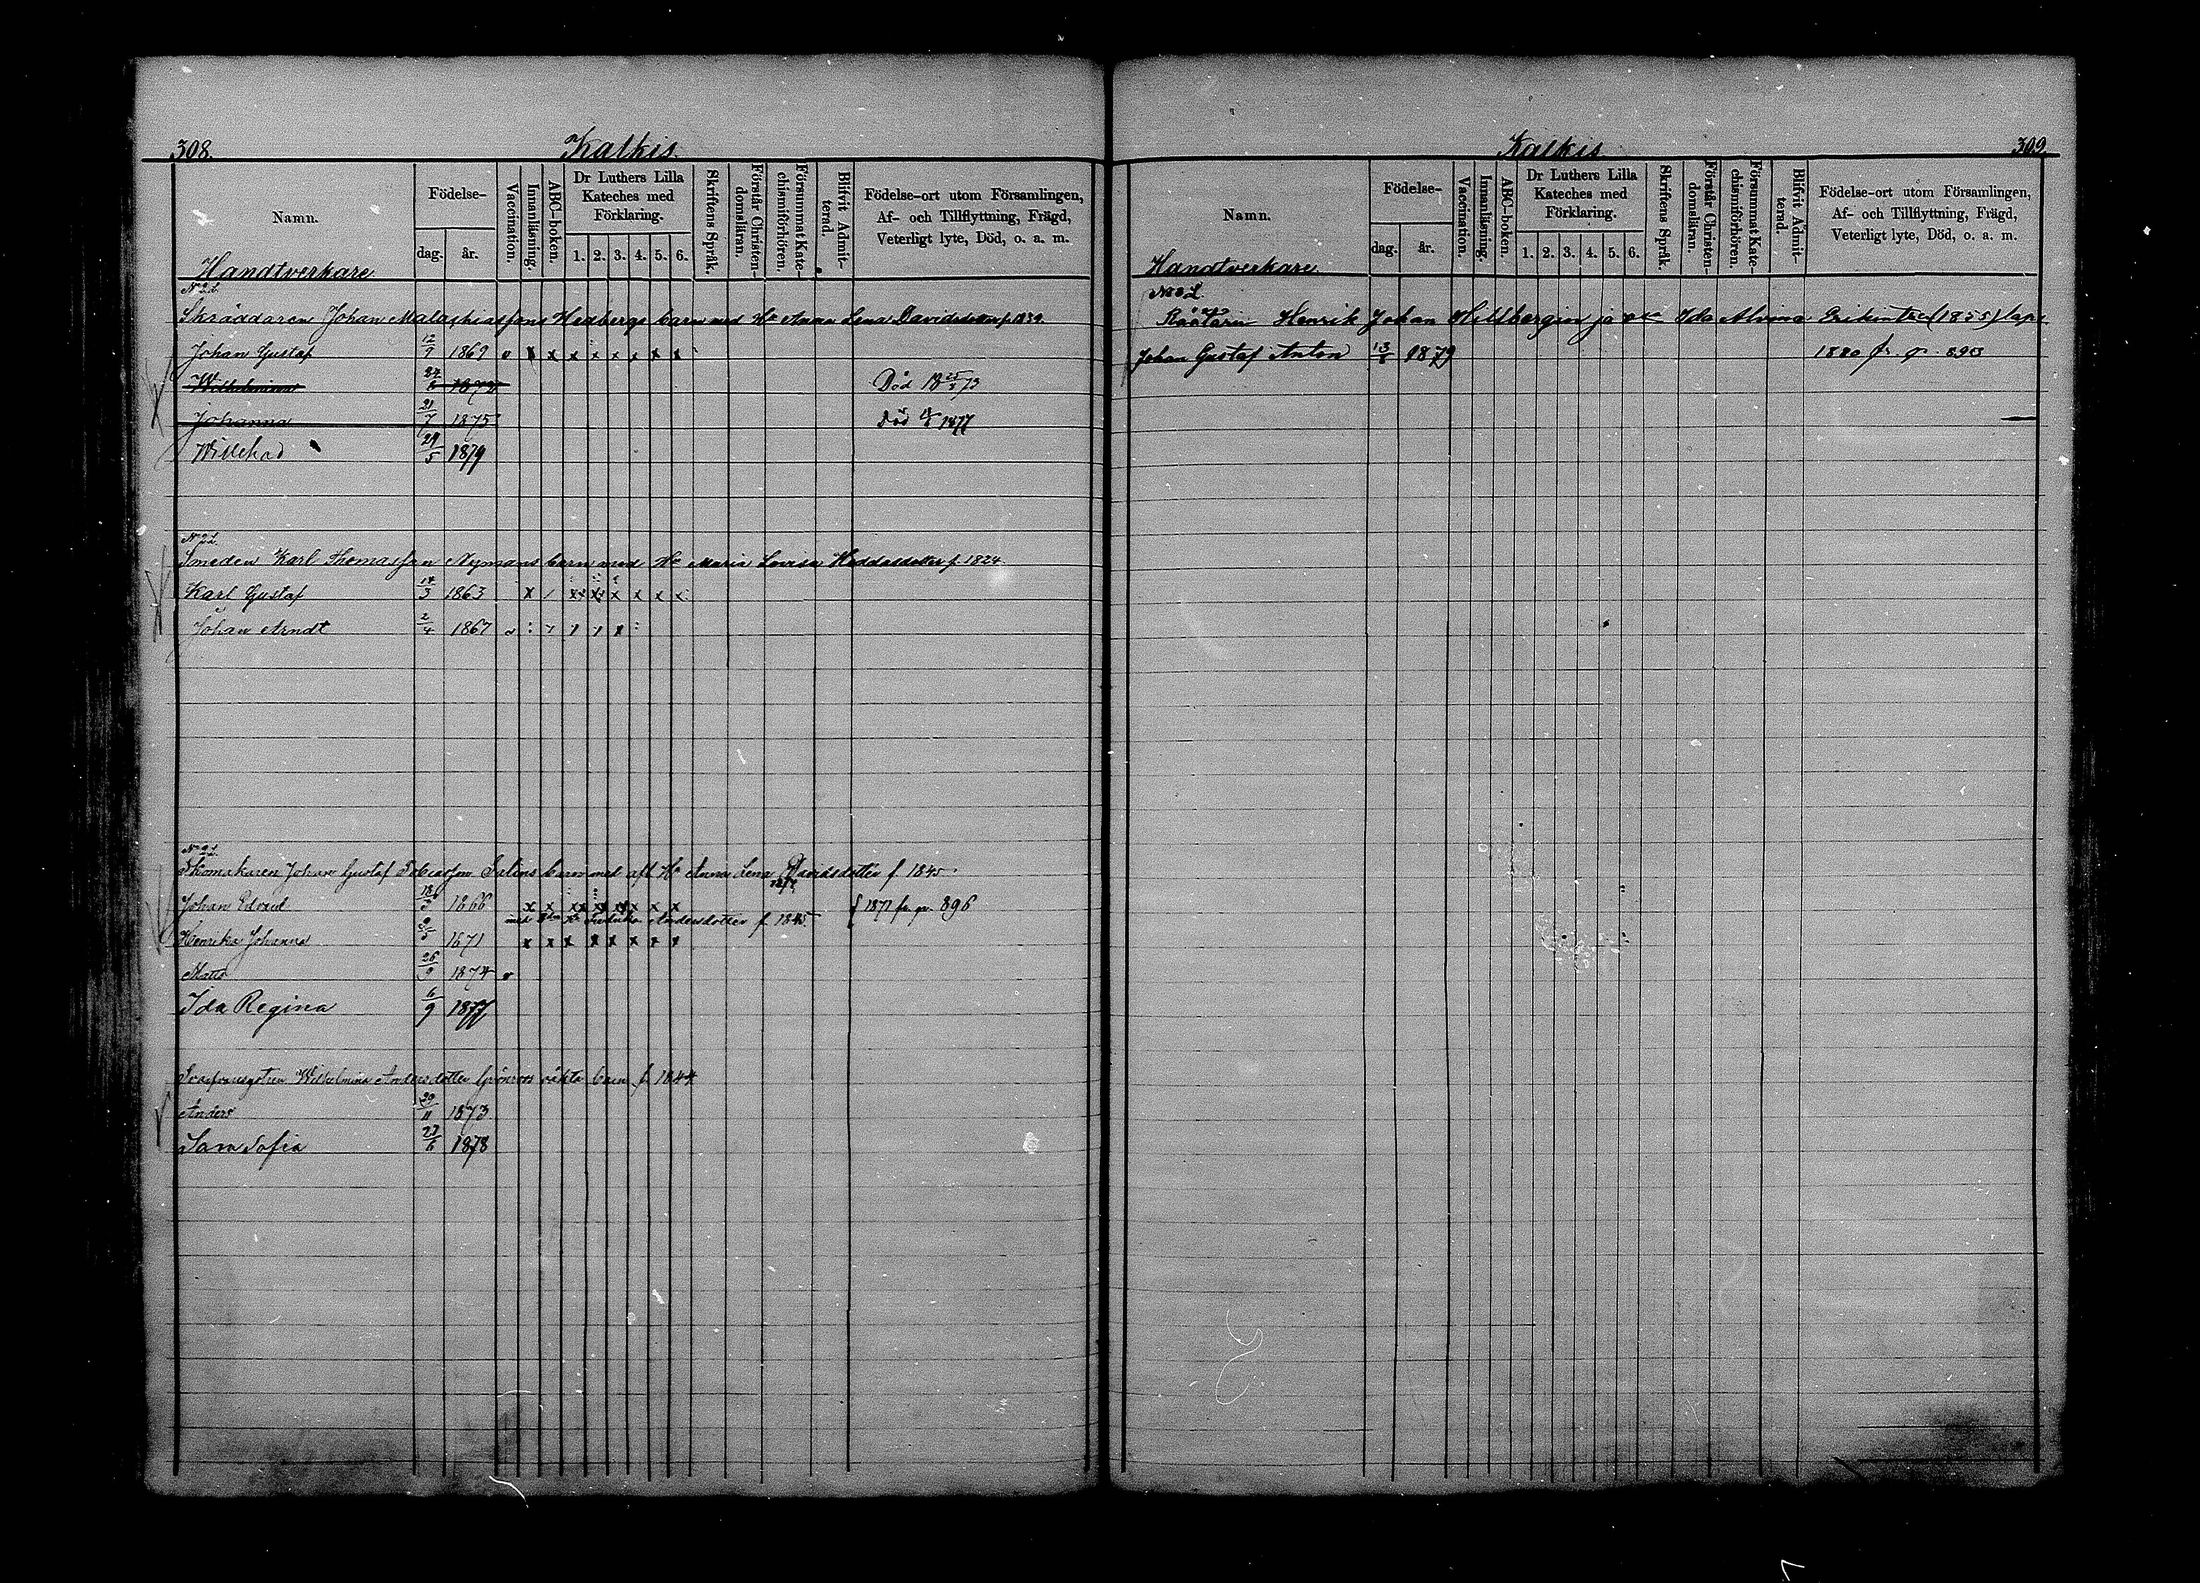 308. Kalkis.
Namn. Födelse- dag. år. Vaccination. Innanläsning. ABC-boken. Dr Luthers Lilla Kateches med Förklaring. 1. 2. 3. 4. 5. 6. Skriftens Språk. Förstår Christendomsläran. Försummat Katechismiförhören. Blifvit Admitterad. Födelse-ort utom Församlingen, Af- och Tillflyttning, Frägd, Veterligt lyte, Död, o. a. m.
Handtverkare
Skräddaren Johan Malachiassons Hedbergs barn med Hu Anna Lena Davidsdotter f. 1839.
Johan Gustaf 12/9 1869 v x x x x x x x x
Wilhelmina 24/6 1872 Död 18 25/3 73
Johanna 21/7 1875 Död 1877
Willehad 29/5 1879
Smeden Karl Thomasson Nymans barn med Hu Maria Lovisa f. 1824
Karl Gustaf 14/3 1863
Johan Arndt 2/4 1867
Skomakaren Johan Gustaf Tobiasson Salins barn med afl. Hu Anna Lena Davidsdotter f. 1845
Johan Edvard 18/3 1866 x x x x x x x x { 1877 fr. pr. 896
med Fredrika Andersdotter f. 1845
Henrika Johanna 1871 x x x x x x x x
Matts 26/9 1874 v
Ida Regina 6/9 1877
Wilhelmina Andersdotter Grönroos oäkta barn f. 1844
Anders 29/11 1873
Sara Sofia 27/6 1878
Kalkis 309.
Namn. Födelse- dag. år. Vaccination. Innanläsning. ABC-boken. Dr Luthers Lilla Kateches med Förklaring. 1. 2. 3. 4. 5. 6. Skriftens Språk. Förstår Christendomsläran. Försummat Katechismiförhören. Blifvit Admitterad. Födelse-ort utom Församlingen, Af- och Tillflyttning, Frägd, Veterligt lyte, Död, o. a. m.
Handtverkare
Räätäri Henrik Johan Hillbergin ja Ida Alvina (1855) laps
Johan Gustaf Anton 13/8 1879 1880 fr. pr. 893